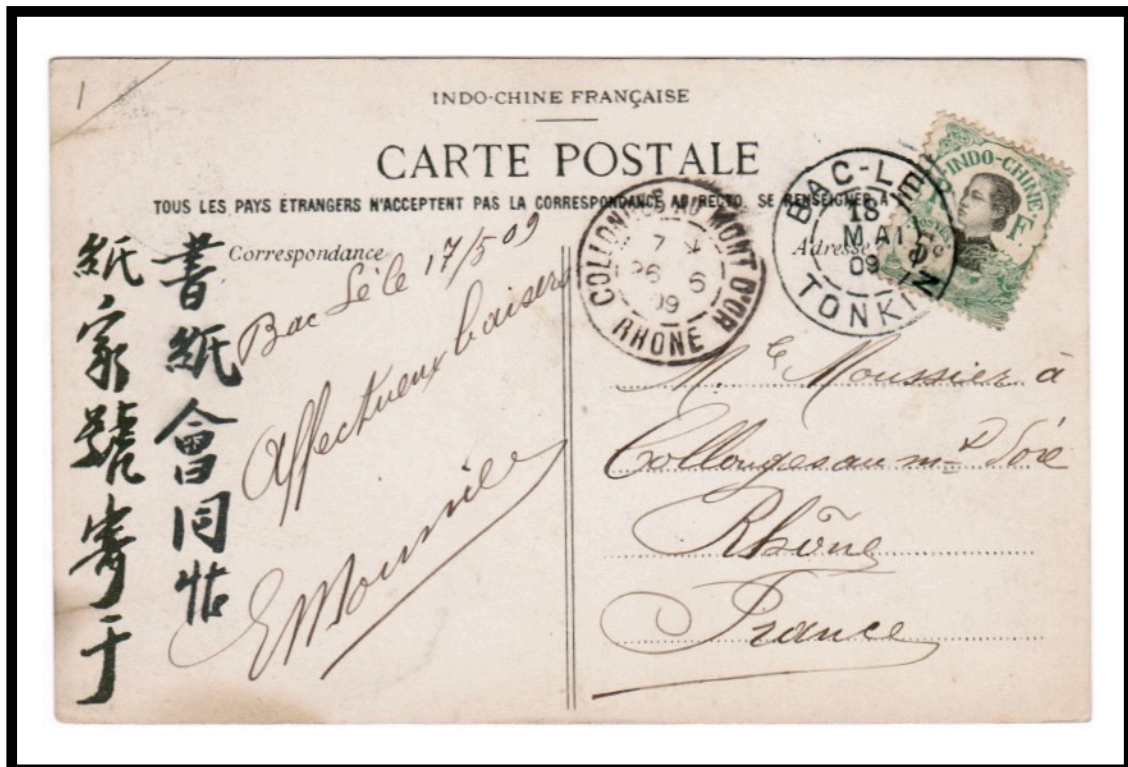 1
INDO-CHINE FRANÇAISE
CARTE POSTALE
TOUS LES PAYS ÉTRANGERS N'ACCEPTENT PAS LA CORRESPONDANCE AU RECTO. SE RENSEIGNER A
Correspondance
Adresse
Bac Lé le 17/5 09
Affectueux baisers
書紙會同帖
紙家號寄于
COLLONGES AU MONT D'OR
26 6
09
RHONE
BAC-LE
18
MAI
09
TONKIN
INDO-CHINE
F
M. le Moussier à
Collonges au mt d'ore
Rhône
France